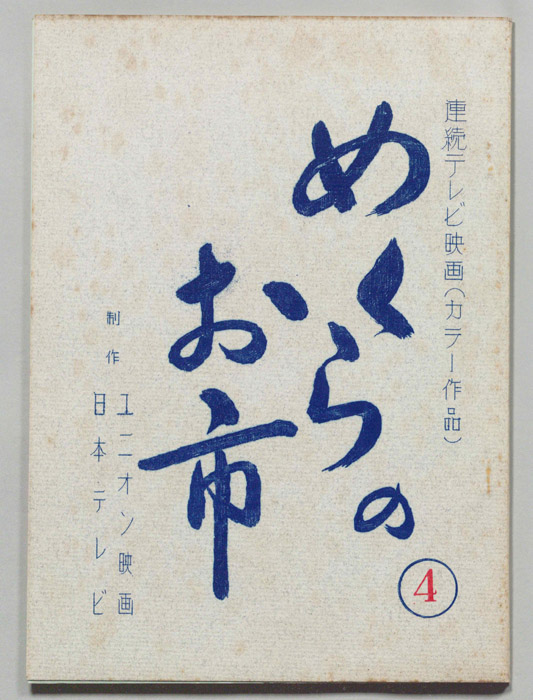 連続テレビ映画(カラー作品)
めくらの
お市
4
制作
ユニオン映画
日本テレビ